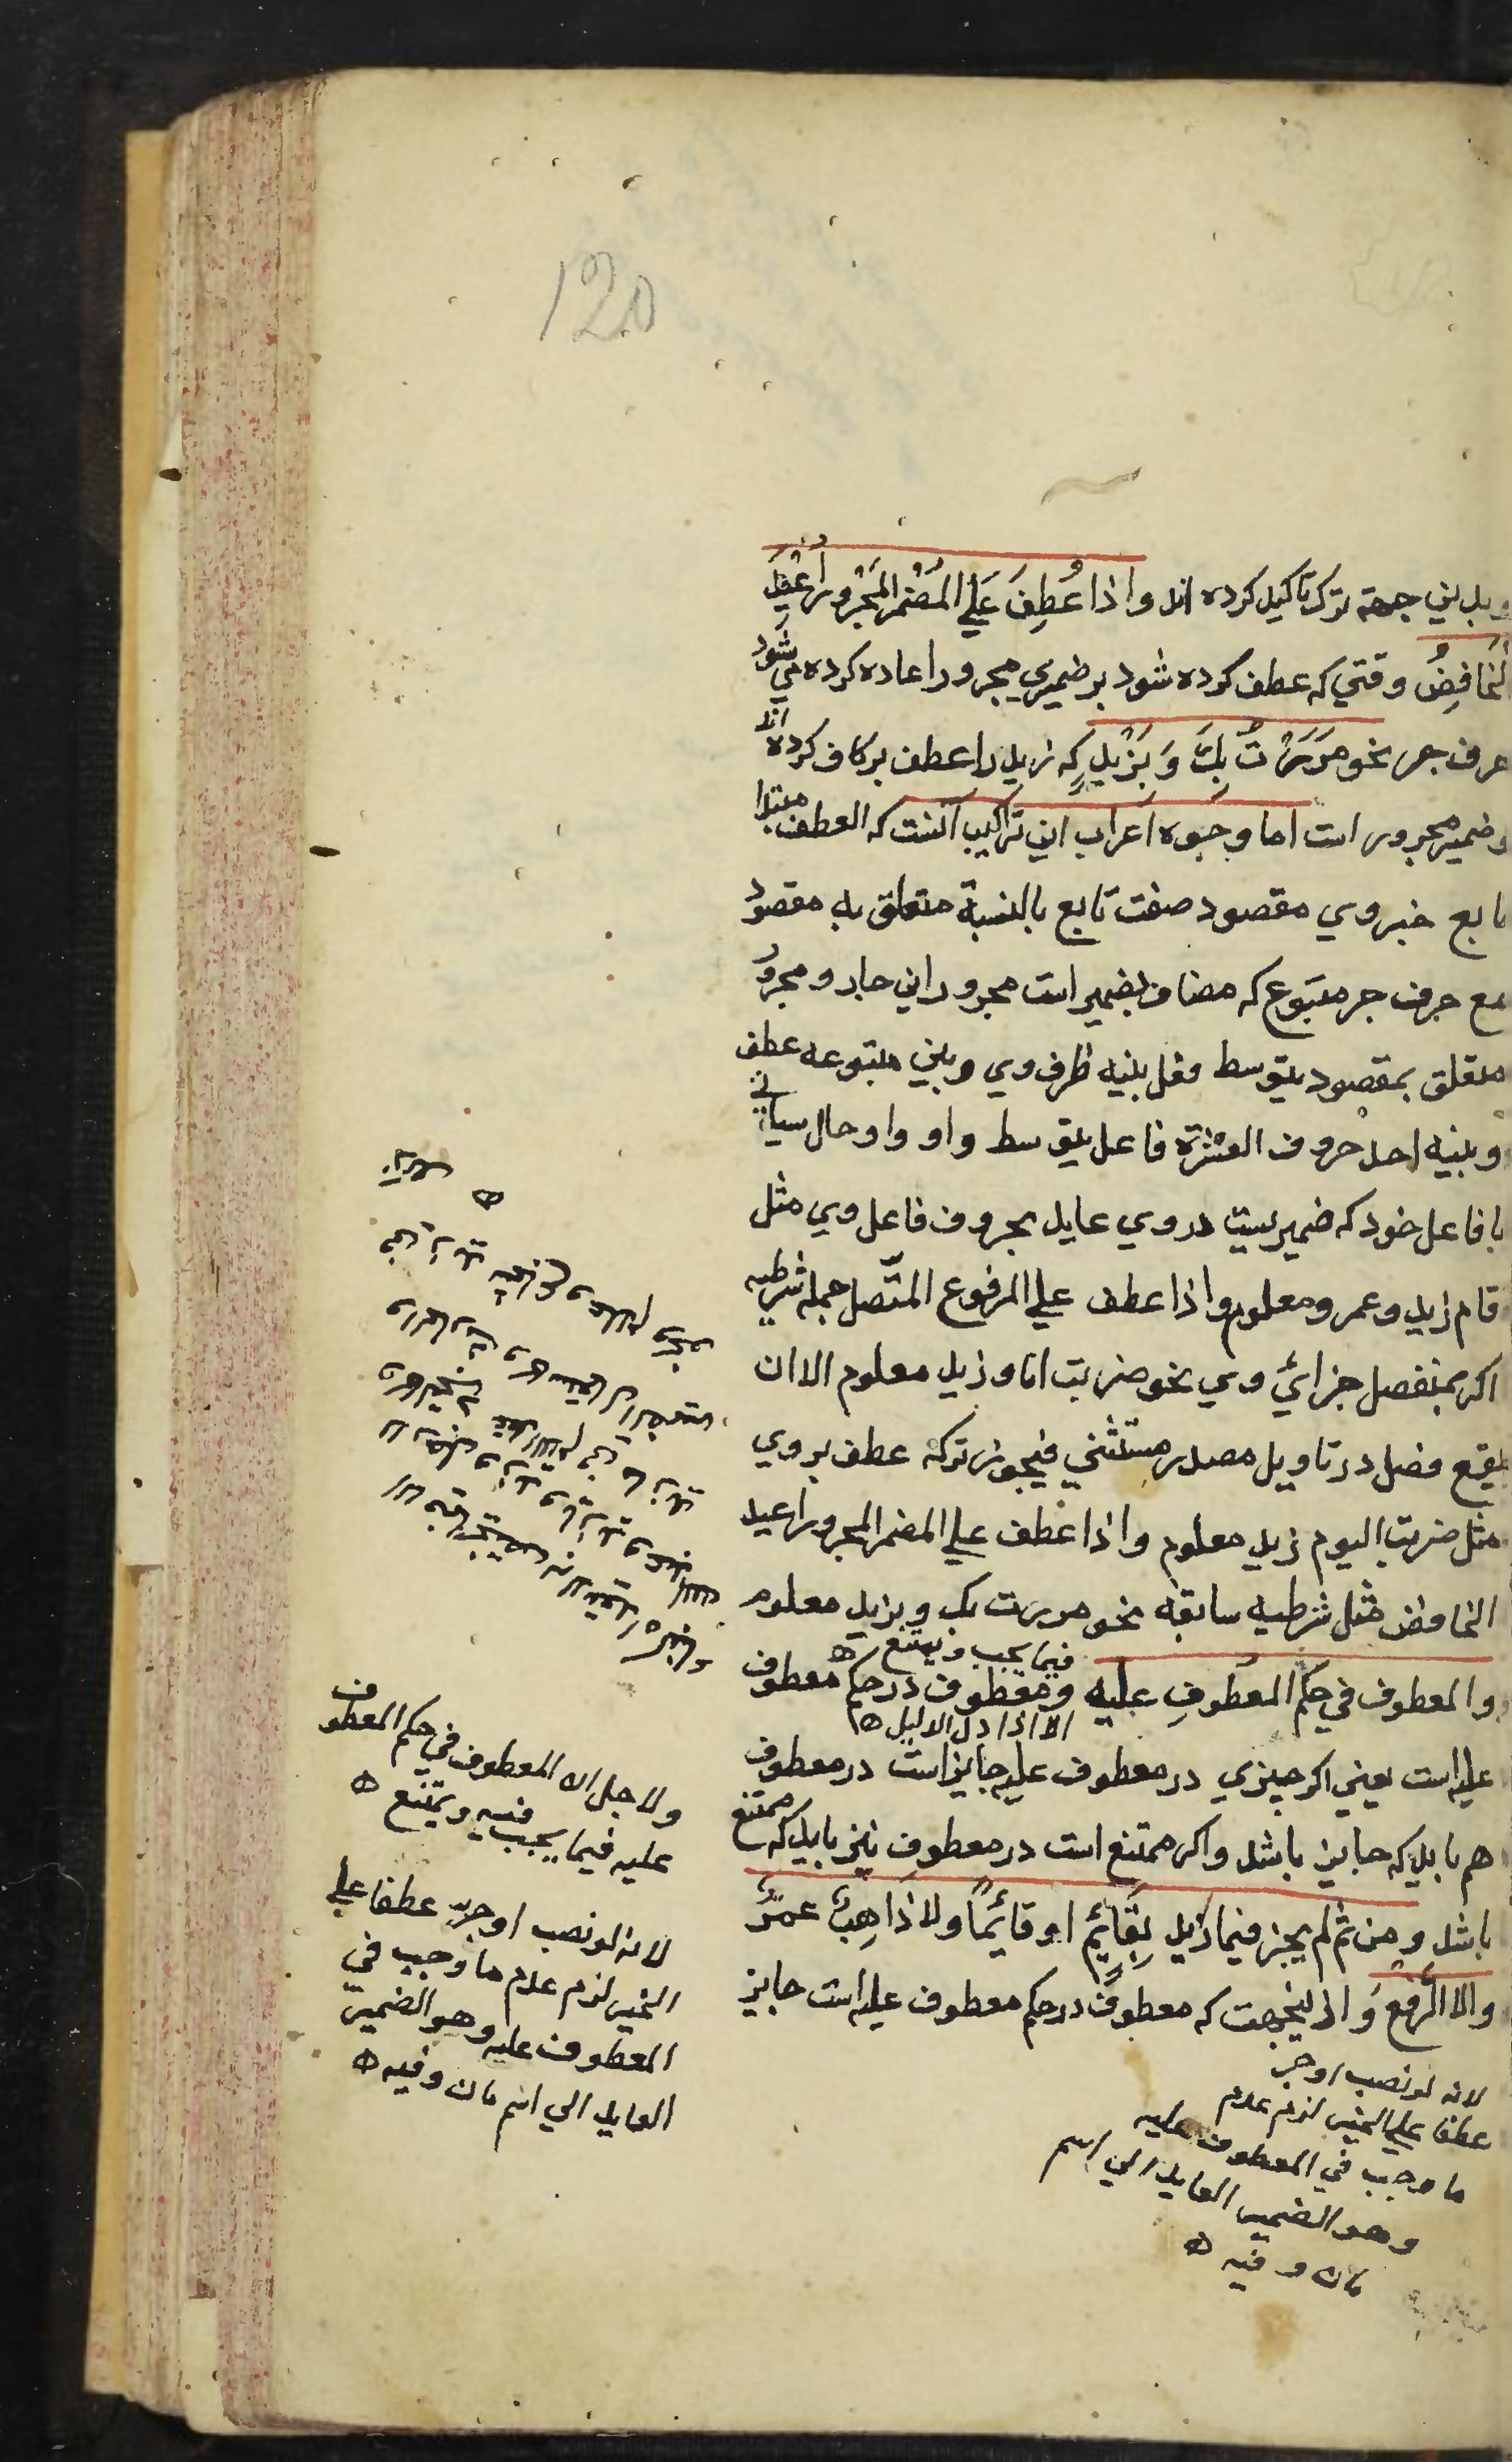 120
وبدين جهة ترك تاكيد كرده اند واذا عُطِفَ عَلَي المُضْمَرِ المَجْرُورِ أُعِيدَ
الخَافِضُ وقتي كه عطف كرده شود بر ضميري مجرور اعاده كرده مي شود
حرف جر نحو مَرَرْتُ بِكَ وَ بِزَيْدٍ كه زيد را عطف بر كاف كرده اند
و ضمير مجرور است اما وجوه اعراب اين تراكيب آنست كه العطف مبتدا
تابع خبر وي مقصود صفت تابع بالنسبة متعلق به مقصود
مع حرف جر متبوع كه مضاف بضمير است مجرور اين جار و مجرور
متعلق بمقصود يتوسط فعل بينه ظرف وي وبين متبوعه عطف
وبينه احد حروف العشرة فاعل يتوسط واو واو حال سياتي
با فاعل خود كه ضميريست در وي عايد بحروف فاعل وي مثل
قام زيد وعمرو معلوم واذا عطف علي المرفوع المتّصل جمله شرطيه
اكد بمنفصل جزائي وي نحو ضربت انا وزيد معلوم الا ان
يقع فصل در تاويل مصدر مستثني فيجوز تركه عطف بر وي
مثل ضربت اليوم زيد معلوم واذا عطف علي المضمر المجرور اعيد
الخافض مثل شرطيه سابقه نحو مررت بك وبزيد معلوم
فيما يجب ويمتنع
والمعطوف في حكم المعطوفِ عليه ومعطوف در حكم معطوف
الا اذا دل الدليل
عليه است يعني اكر چيزي در معطوف عليه جايز است در معطوف
هم بايد كه جايز باشد واكر ممتنع است در معطوف نيز بايد كه ممتنع
باشد ومن ثم لم يجز في ما زيد بِقَائِمٍ او قائِمًا ولا ذَاهِبٌ عمرٌو
والا الرَّفع و ازينجهت كه معطوف در حكم معطوف عليه است جايز
لانه لو نصب او جر
عطفا علي الخبر لزم عدم
ما وجب في المعطوف عليه
وهو الضمير العايد الي اسم
مات وفيه
ولاجل ان المعطوف في حكم المعطوف
عليه فيما يجب فيه ويمتنع
لانه لو نصب او جر عطفا علي
الخبر لزم عدم ما وجب في
المعطوف عليه وهو الضمير
العايد الي اسم مات وفيه